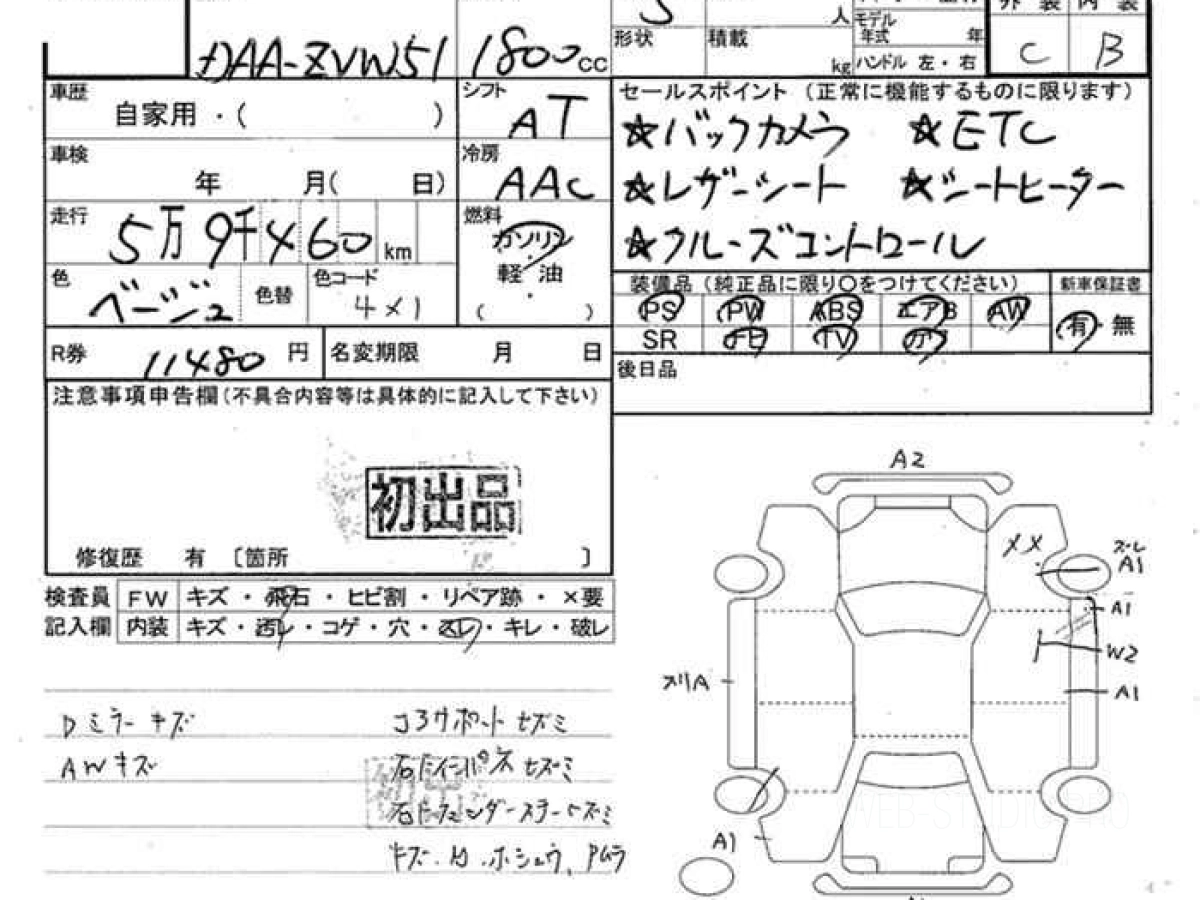 DAA-ZVW51 1800cc
5 人
モデル
年式 年
形状 積載 kg
ハンドル 左・右
外装 内装
C B
車歴
自家用・( )
シフト
AT
車検
年 月( 日)
冷房
AAC
走行
5万9千460km
燃料
ガソリン
軽・油
( )
色
ベージュ
色替
色コード
4X1
R券 11480円
名変期限 月 日
セールスポイント (正常に機能するものに限ります)
☆バックカメラ ☆ETC
☆レザーシート ☆シートヒーター
☆クルーズコントロール
装備品 (純正品に限り○をつけてください)
新車保証書
PS PW ABS エアB AW
SR ナビ TV カワ
有・無
後日品
注意事項申告欄(不具合内容等は具体的に記入して下さい)
初出品
修復歴 有 〔箇所 〕
検査員 FW キズ・飛石・ヒビ割・リペア跡・×要
記入欄 内装 キズ・汚レ・コゲ・穴・スレ・キレ・破レ
Dミラーキズ
AWキズ
コアサポート セズミ
右Fインパネ セズミ
右Fフェンダーステー セズミ
A2
XX
ズレ
A1
A1
W2
A1
A1
WEB-STUDIO.PRO